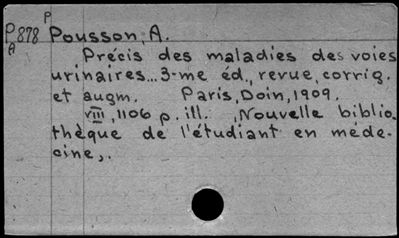 P
P878 Pousson, A.
A
Précis des maladies des voies
urinaires... 3-me éd., revue, corrig.
et augm. Paris, Doin, 1909.
viii, 1106 p. ill. ,Nouvelle biblio.
thèque de l'étudiant en méde-
cine,.